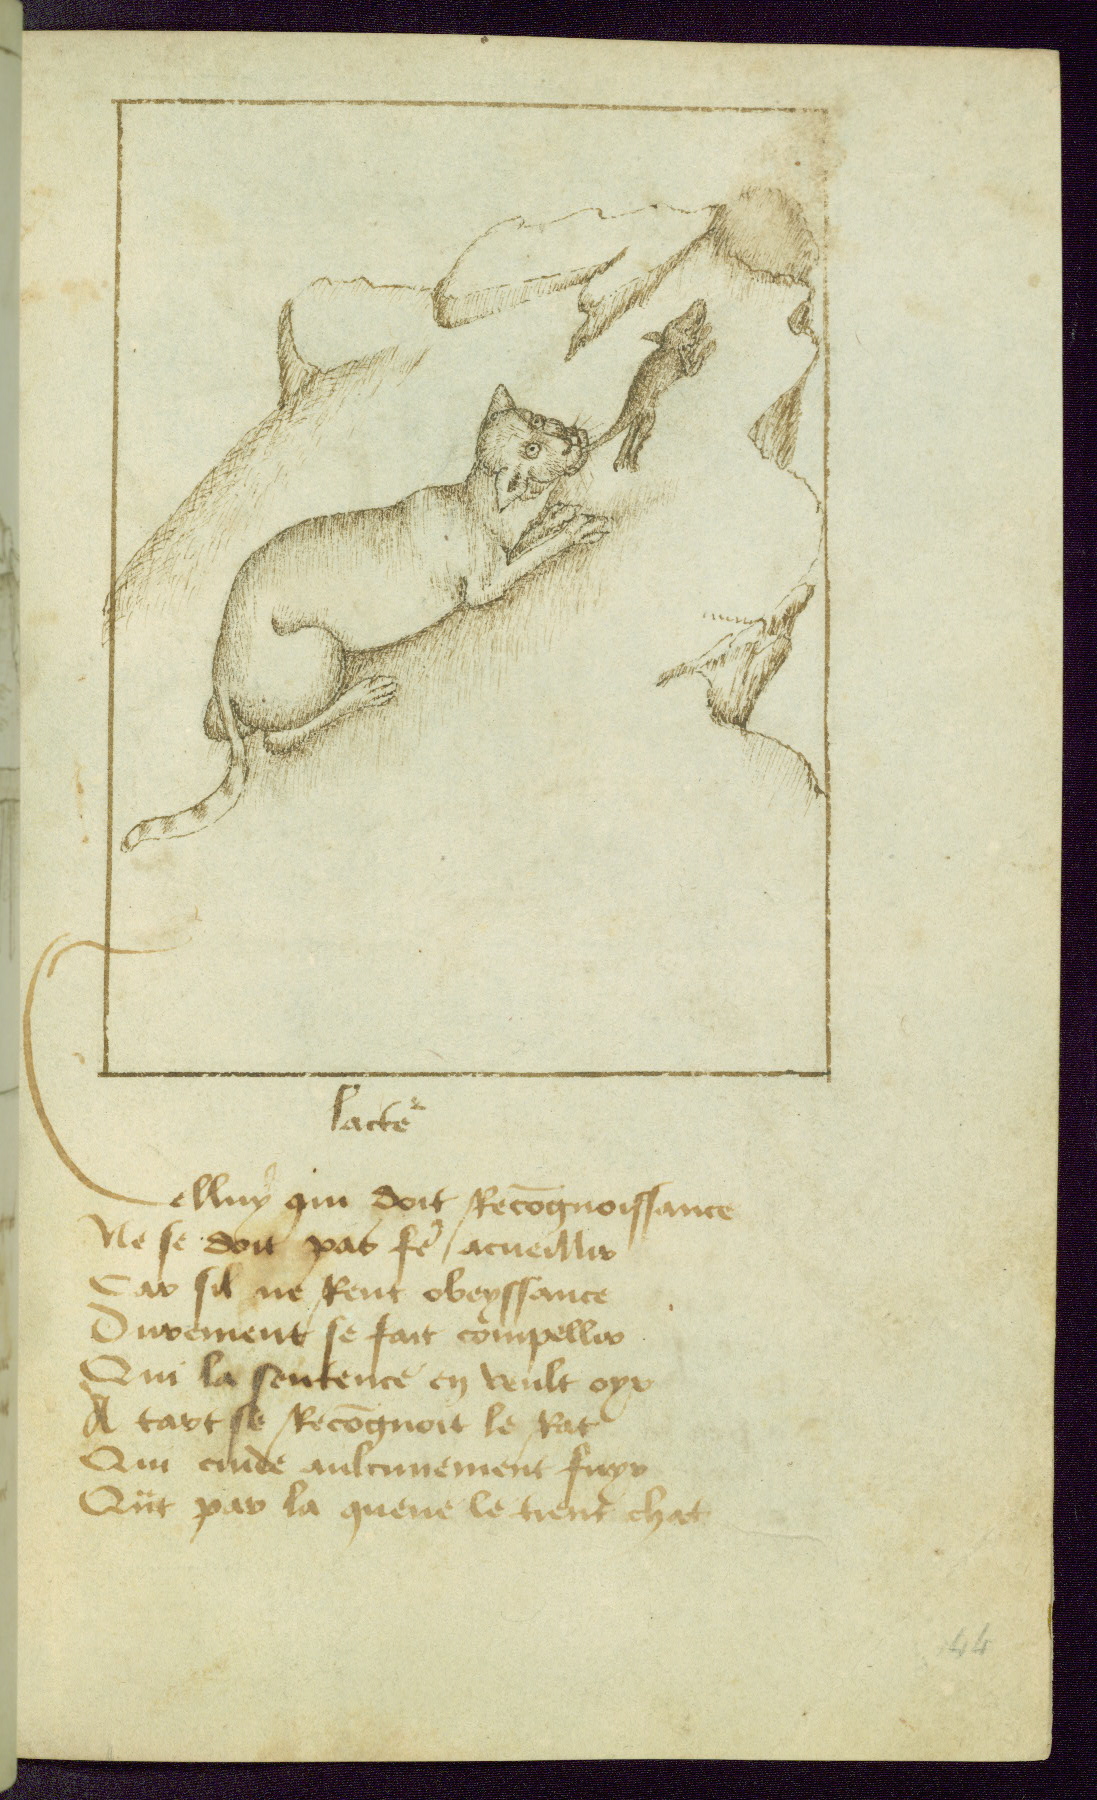 lacteᵉ
Celluy qui doit Recõgnoissance
Ne se doit pas feʳ acueillir
Car sil ne Rent obeyssance
Durement se fait compellir
Qui la sentence en veult oyr
A tart se Recõgnoit le Rat
Qui cuide aulcunement fuyr
Qũt par la queue le tient chat
44